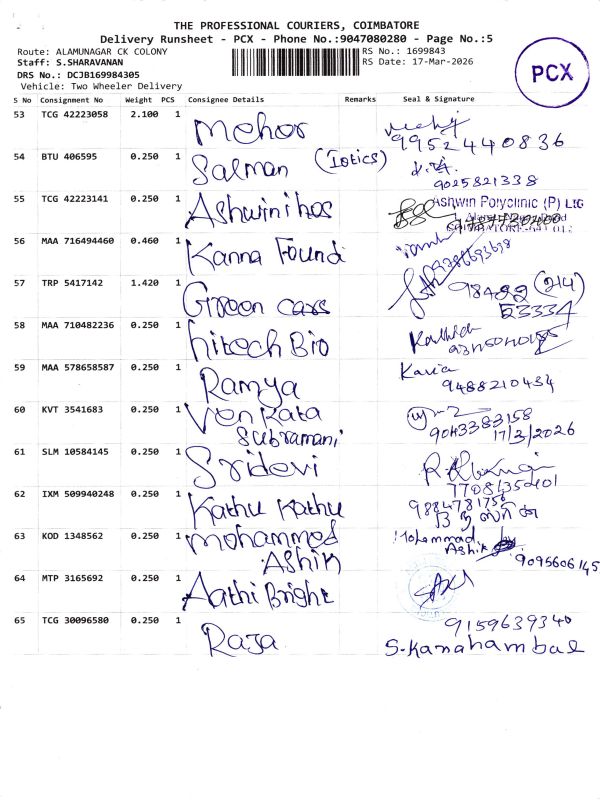 THE PROFESSIONAL COURIERS, COIMBATORE
Delivery Runsheet - PCX - Phone No.:9047080280 - Page No.:5
Route: ALAMUNAGAR CK COLONY
RS No.: 1699843
Staff: S.SHARAVANAN
RS Date: 17-Mar-2026
DRS No.: DCJB169984305
Vehicle: Two Wheeler Delivery
PCX
S No Consignment No Weight PCS Consignee Details Remarks Seal & Signature
53 TCG 42223058 2.100 1 Mohor
9952440836
54 BTU 406595 0.250 1 Salman (Iotics)
9025821338
55 TCG 42223141 0.250 1 Ashwinihos
Ashwin Polyclinic (P) Ltd
56 MAA 716494460 0.460 1 Kanna Foundi
57 TRP 5417142 1.420 1 Green cars
98422 (214)
23334
58 MAA 710482236 0.250 1 hitech Bio
59 MAA 578658587 0.250 1 Ramya
Kavia
9488210434
60 KVT 3541683 0.250 1 Venkata
Subramani
9043383158
17/3/2026
61 SLM 10584145 0.250 1 Sridevi
7708135401
62 IXM 509940248 0.250 1 Kathu Kathu
9884781756
63 KOD 1348562 0.250 1 mohammed
Ashik
Mohammad
Ashik
9095606145
64 MTP 3165692 0.250 1 Aathi Bright
65 TCG 30096580 0.250 1 Raja
9159639340
S-Kanahambal